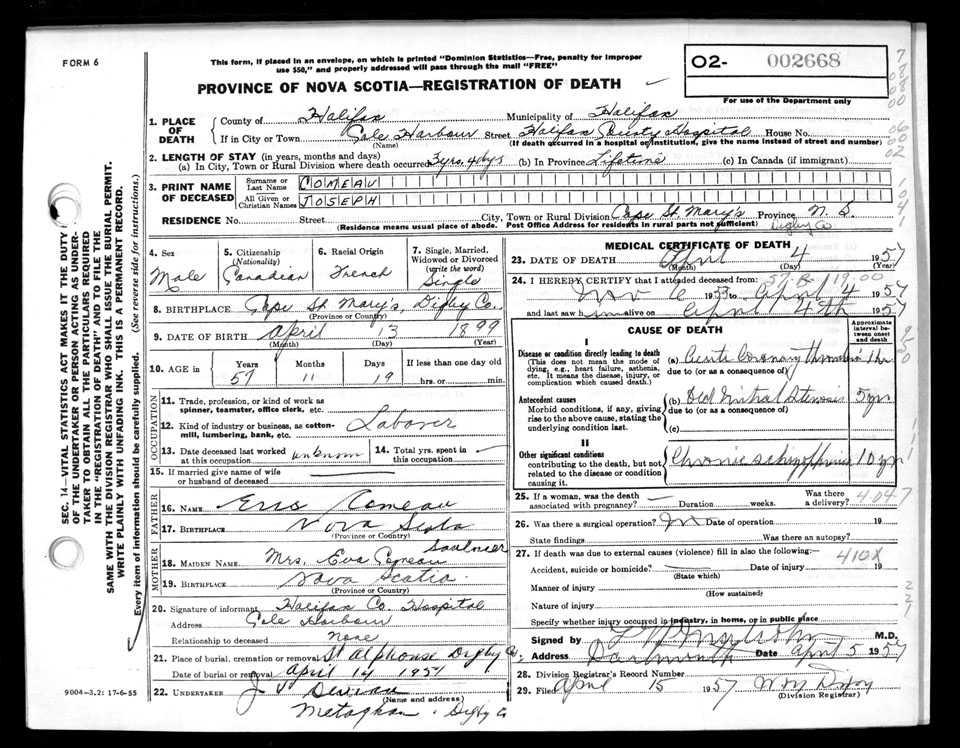 FORM 6
This form, if placed in an envelope, on which is printed "Dominion Statistics—Free, penalty for improper
use $50," and properly addressed will pass through the mail "FREE"
PROVINCE OF NOVA SCOTIA—REGISTRATION OF DEATH
02- 002668
For use of the Department only
1. PLACE OF DEATH
County of Halifax Municipality of Halifax
If in City or Town Cole Harbour Street Halifax County Hospital House No.
(Name) (If death occurred in a hospital or institution, give the name instead of street and number)
2. LENGTH OF STAY (in years, months and days)
(a) In City, Town or Rural Division where death occurred 3 yrs. 4 dys (b) In Province Lifetime (c) In Canada (if immigrant)
3. PRINT NAME OF DECEASED
Surname or Last Name COMEAU
All Given or Christian Names JOSEPH
RESIDENCE No. Street City, Town or Rural Division Cape St Mary's Province N.S.
(Residence means usual place of abode. Post Office Address for residents in rural parts not sufficient) Digby Co
4. Sex Male
5. Citizenship (Nationality) Canadian
6. Racial Origin French
7. Single, Married, Widowed or Divorced (write the word) Single
8. BIRTHPLACE Cape St Mary's, Digby Co.
(Province or Country)
9. DATE OF BIRTH April 13 1899
(Month) (Day) (Year)
10. AGE in Years Months Days If less than one day old
57 11 19 hrs. or min.
OCCUPATION
11. Trade, profession, or kind of work as
spinner, teamster, office clerk, etc.
12. Kind of industry or business, as cotton-
mill, lumbering, bank, etc. Laborer
13. Date deceased last worked at this occupation unknown
14. Total yrs. spent in this occupation
15. If married give name of wife
or husband of deceased
FATHER
16. NAME Comeau
17. BIRTHPLACE Nova Scotia
(Province or Country)
MOTHER
18. MAIDEN NAME Mrs. Eva Comeau Saulnier
19. BIRTHPLACE Nova Scotia
(Province or Country)
20. Signature of informant Halifax Co. Hospital
Address Cole Harbour
Relationship to deceased None
21. Place of burial, cremation or removal St Alphonse Digby Co,
Date of burial or removal April 14 1957
22. UNDERTAKER J. V.
(Name and address)
Meteghan. Digby Co
9004—3.2: 17-6-55
MEDICAL CERTIFICATE OF DEATH
23. DATE OF DEATH April 4 1957
(Month) (Day) (Year)
24. I HEREBY CERTIFY that I attended deceased from:
Nov 6 1953 to April 4 1957
and last saw him alive on April 4th 1957
CAUSE OF DEATH
Approximate interval between onset and death
I
Disease or condition directly leading to death
(This does not mean the mode of dying, e.g., heart failure, asthenia, etc. It means the disease, injury, or complication which caused death.)
(a) Acute Coronary Thrombosis 1 hr.
due to (or as a consequence of)
Antecedent causes
Morbid conditions, if any, giving rise to the above cause, stating the underlying condition last.
(b) Old Mitral Stenosis 5 yrs
due to (or as a consequence of)
(c)
II
Other significant conditions
contributing to the death, but not related to the disease or condition causing it.
Chronic schizophrenia 10 yrs
25. If a woman, was the death associated with pregnancy? Duration weeks. Was there a delivery?
26. Was there a surgical operation? Date of operation 19
State findings Was there an autopsy?
27. If death was due to external causes (violence) fill in also the following:— 410X
Accident, suicide or homicide? Date of injury 19
(State which)
Manner of injury
(How sustained)
Nature of injury
Specify whether injury occurred in industry, in home, or in public place
Signed by M.D.
Address Dartmouth Date April 5 1957
28. Division Registrar's Record Number
29. Filed April 15 1957
(Division Registrar)
SEC. 14—VITAL STATISTICS ACT MAKES IT THE DUTY
OF THE UNDERTAKER OR PERSON ACTING AS UNDER-
TAKER TO OBTAIN ALL THE PARTICULARS REQUIRED
IN THE "REGISTRATION OF DEATH" AND TO FILE THE
SAME WITH THE DIVISION REGISTRAR WHO SHALL ISSUE THE BURIAL PERMIT.
WRITE PLAINLY WITH UNFADING INK. THIS IS A PERMANENT RECORD.
Every item of information should be carefully supplied. (See reverse side for instructions.)